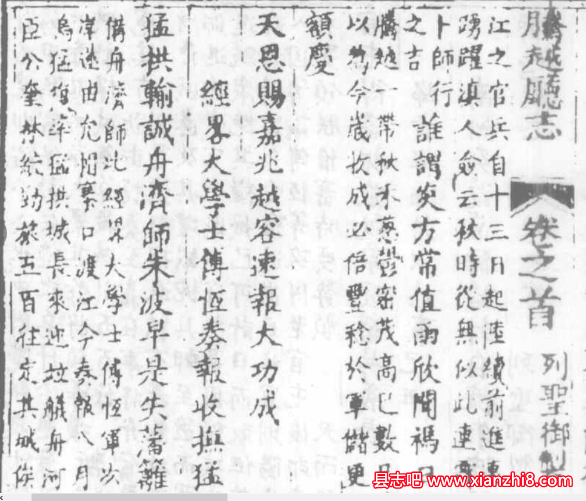 騰越廳志 卷之首 列聖御製
江之官兵自十三日起陸續前進軍
踴躍滇人僉云秋時從無似此連
卜師行 誰謂炎方常值雨欣聞禡日
之吉
騰越一帶秋禾蔥鬱密茂高已數尺
以為今歲收成必倍豐稔於軍儲更
額慶
天恩賜嘉兆越容速報大功成
經畧大學士傅恆奏報收撫猛
猛拱輸誠舟濟師朱波早是失藩籬
備舟濟師比經畧大學士傅恆軍以
遂由允帽寨口渡江今奏報八月
烏猛猛拱城長來迎並艤舟河
臣公奎林統勁旅五百往定其城俟
县志吧 www.xianzhi8.com